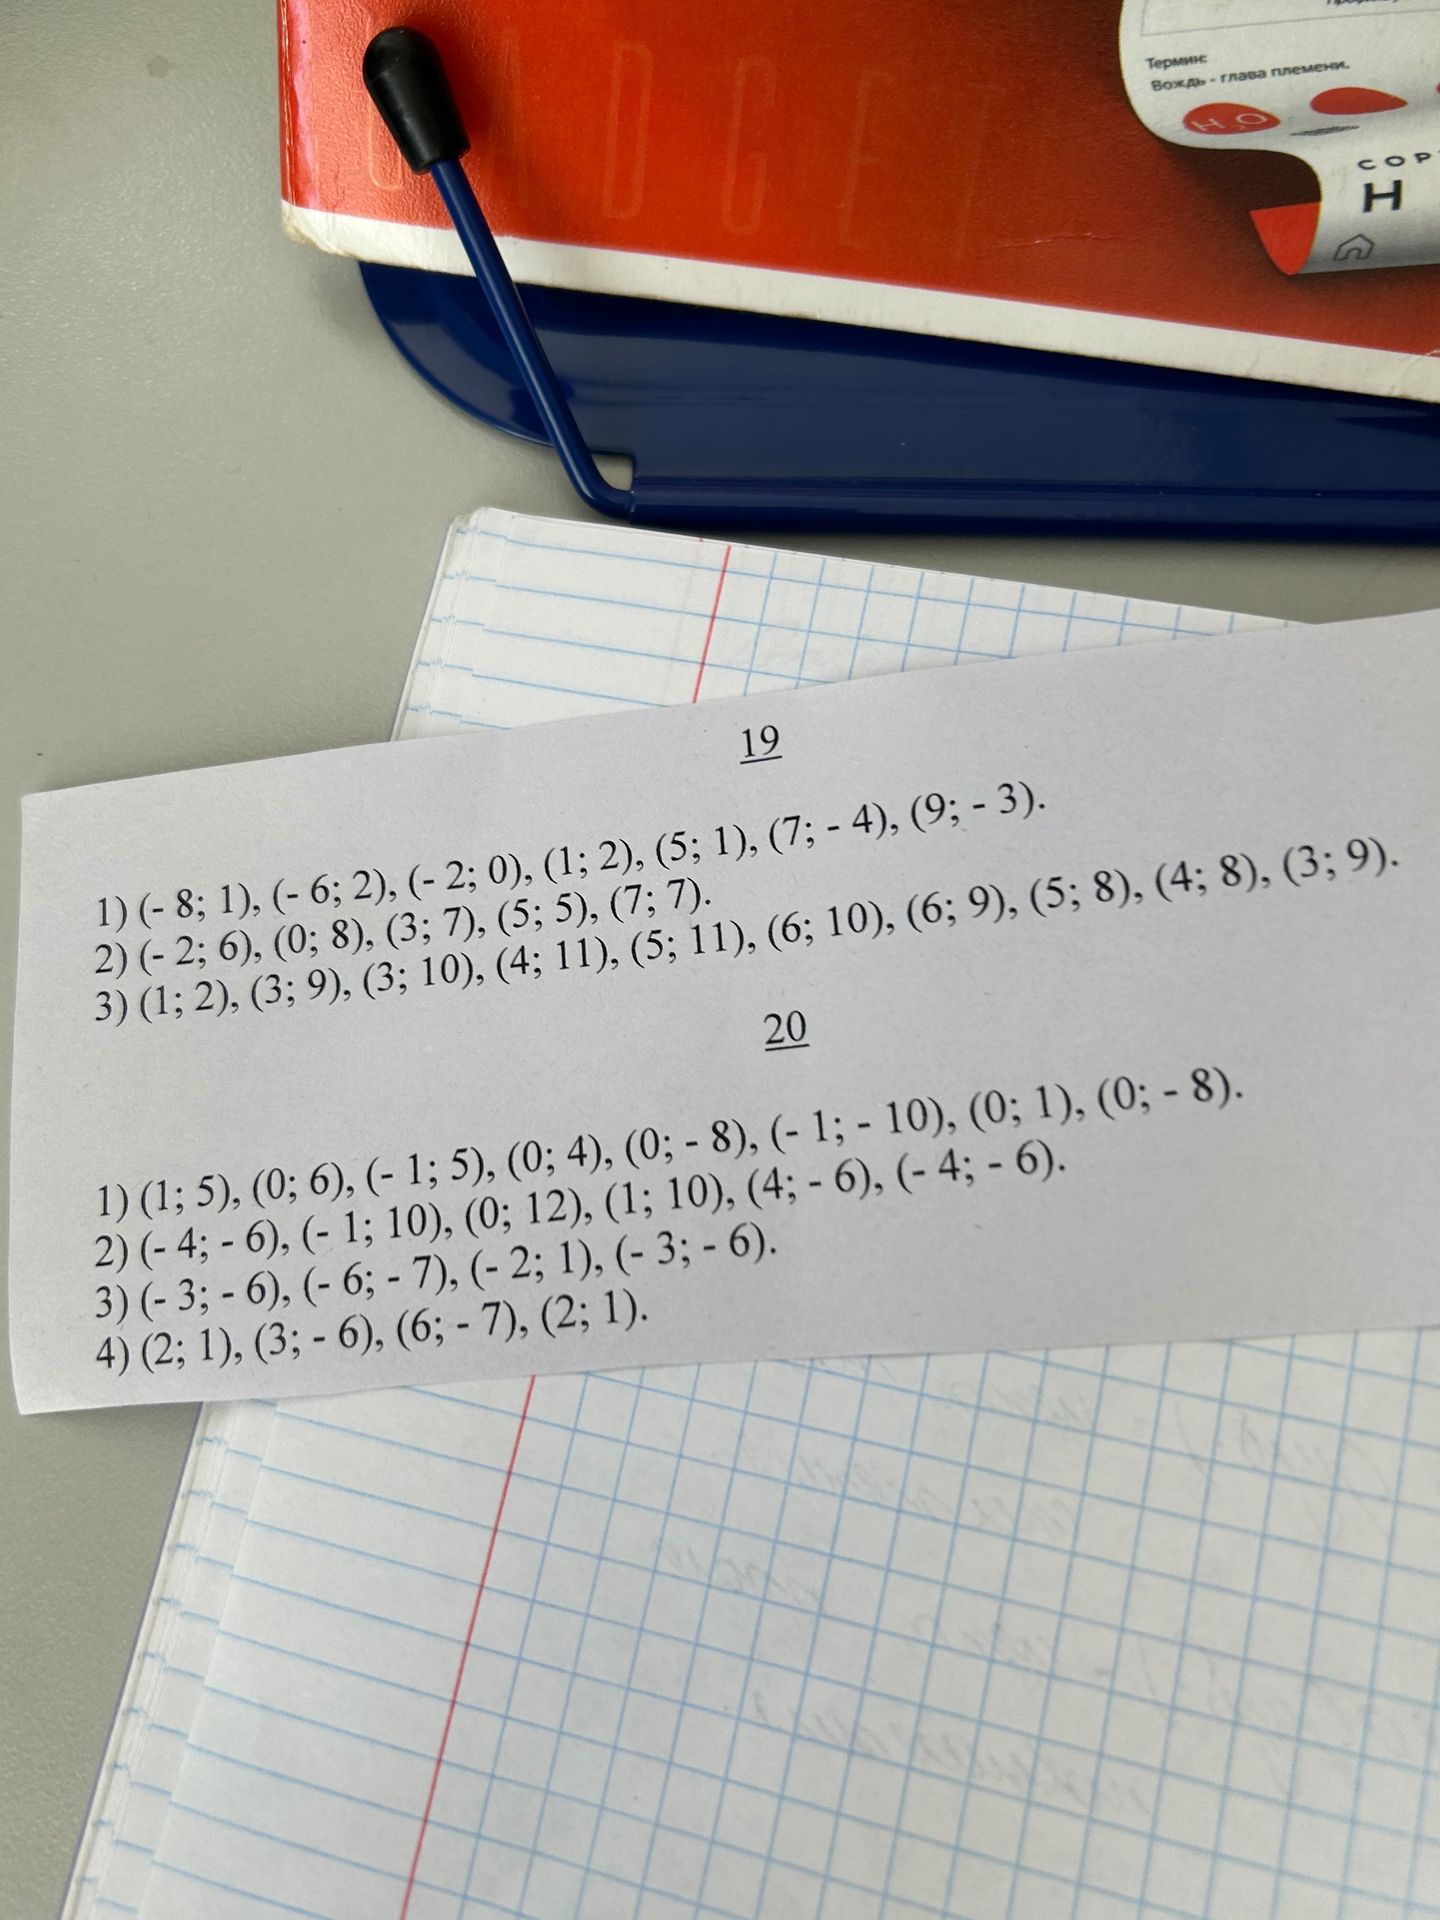 GADGET
Термин:
Вождь - глава племени.
H₂O
COP
H
19
1) (- 8; 1), (- 6; 2), (- 2; 0), (1; 2), (5; 1), (7; - 4), (9; - 3).
2) (- 2; 6), (0; 8), (3; 7), (5; 5), (7; 7).
3) (1; 2), (3; 9), (3; 10), (4; 11), (5; 11), (6; 10), (6; 9), (5; 8), (4; 8), (3; 9).
20
1) (1; 5), (0; 6), (- 1; 5), (0; 4), (0; - 8), (- 1; - 10), (0; 1), (0; - 8).
2) (- 4; - 6), (- 1; 10), (0; 12), (1; 10), (4; - 6), (- 4; - 6).
3) (- 3; - 6), (- 6; - 7), (- 2; 1), (- 3; - 6).
4) (2; 1), (3; - 6), (6; - 7), (2; 1).